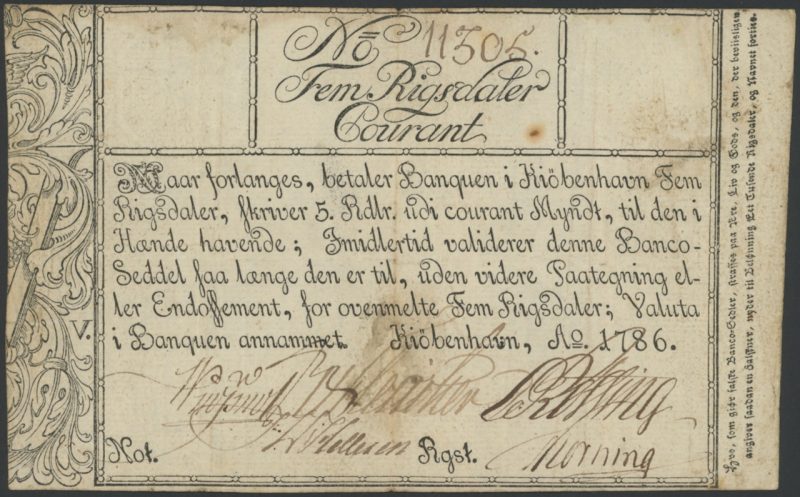 No. 11305.
Fem Rigsdaler
Courant
Naar forlanges, betaler Banquen i Kiöbenhavn Fem
Rigsdaler, skriver 5. Rdlr. udi courant Myndt, til den i
Hænde havende; Imidlertid validerer denne Banco-
Seddel saa længe den er til, uden videre Paategning el-
ler Endossement, for ovenmelte Fem Rigsdaler; Valuta
i Banquen annammet. Kiöbenhavn, Ao. 1786.
V.
Not. Rgst. Horning
Hvo, som giør falske Banco-Sedler, straffes paa Ære, Liv og Gods, og den, der beviisligen
angiver saadan en Falskner, nyder til Belønning Eet Tusinde Rigsdaler, og Navnet